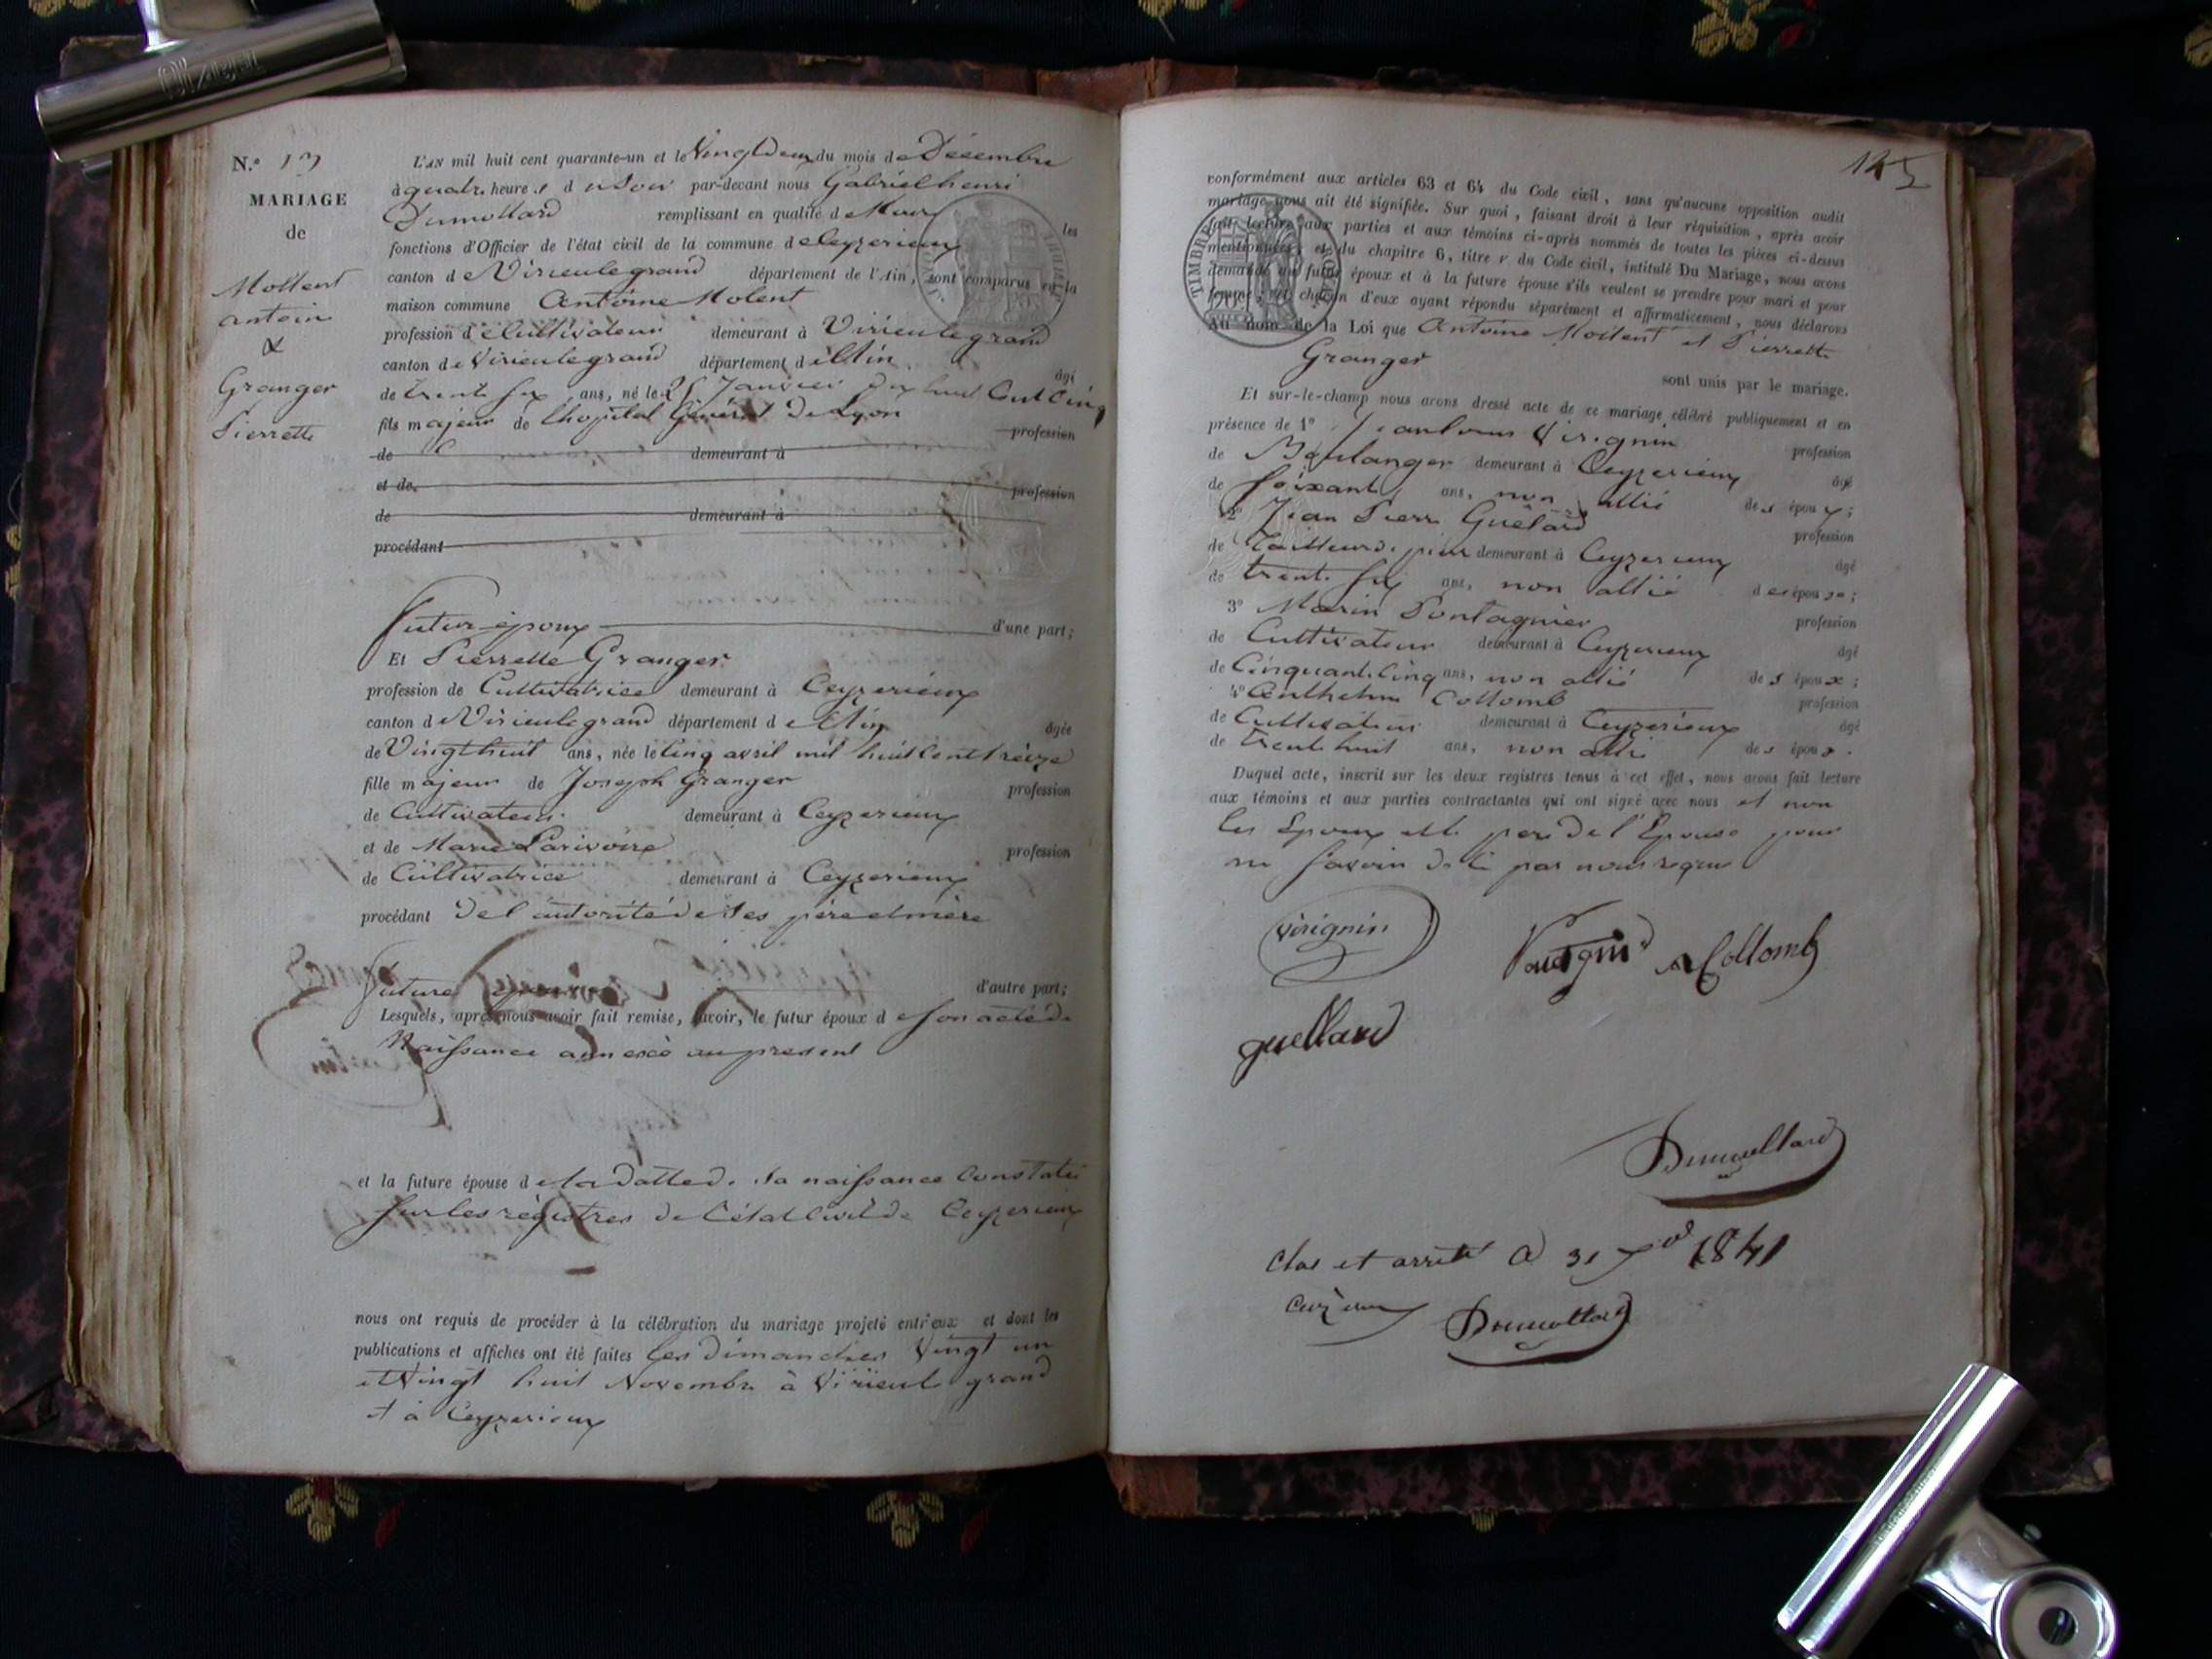 N.º 13
MARIAGE
de
Mollent
antoin
&
Granger
Pierrette
L'AN mil huit cent quarante-un et le Vingt deux du mois de Décembre
à quatre heures du soir par-devant nous Gabriel henri
Dumollard remplissant en qualité de Maire les
fonctions d'Officier de l'état civil de la commune de Ceyzerieux
canton de Virieulegrand département de l'Ain, sont comparus en la
maison commune Antoine Molent
profession de Cultivateur demeurant à Virieulegrand
canton de Virieulegrand département de l'Ain âgé
de trente six ans, né le 25 Janvier dix huit Cent Cinq
fils majeur de l'hopital Général de Lyon
profession
de demeurant à
et de profession
de demeurant à
procédant
futur époux d'une part;
Et Pierrette Granger
profession de Cultivatrice demeurant à Ceyzerieux
canton de Virieulegrand département de l'Ain âgée
de Vingthuit ans, née le Cinq avril mil huit Cent treize
fille majeur de Joseph Granger profession
de Cultivateur demeurant à Ceyzerieux
et de Marie Larivoire profession
de Cultivatrice demeurant à Ceyzerieux
procédant de l'autorité de ses père et mère
future epouse d'autre part;
Lesquels, après nous avoir fait remise, savoir, le futur époux de son acte de
Naissance annexée au present
et la future épouse de la datte de sa naissance Constaté
sur les règistres de l'état Civil de Ceyzerieux
nous ont requis de procéder à la célébration du mariage projeté entr'eux et dont les
publications et affiches ont été faites les dimanches Vingt un
et Vingt huit Novembre à Virieule grand
et à Ceyzerieux
125
conformément aux articles 63 et 64 du Code civil, sans qu'aucune opposition audit
mariage nous ait été signifiée. Sur quoi, faisant droit à leur réquisition, après avoir
fait lecture aux parties et aux témoins ci-après nommés de toutes les pièces ci-dessus
mentionnées, et du chapitre 6, titre v du Code civil, intitulé Du Mariage, nous avons
demandé au futur époux et à la future épouse s'ils veulent se prendre pour mari et pour
femme; et chacun d'eux ayant répondu séparément et affirmativement, nous déclarons
Au nom de la Loi que Antoine Mollent et Pierrette
Granger sont unis par le mariage.
Et sur-le-champ nous avons dressé acte de ce mariage célébré publiquement et en
présence de 1º Jean louis Virignin profession
de Boulanger demeurant à Ceyzerieux âgé
de soixante ans, non allié des époux;
2º Jean Pierre Guélard profession
de Tailleur de pierre demeurant à Ceyzerieux âgé
de trente six ans, non allié des époux;
3º Marin Pontagnier profession
de Cultivateur demeurant à Ceyzerieux âgé
de Cinquante Cinq ans, non allié des époux;
4º Anthelme Collomb profession
de Cultivateur demeurant à Ceyzerieux âgé
de trente huit ans, non allié des époux.
Duquel acte, inscrit sur les deux registres tenus à cet effet, nous avons fait lecture
aux témoins et aux parties contractantes qui ont signé avec nous et non
les Epoux et le pere de l'Epouse pour
ne savoir de ce par nous requis
virignin
A Collomb
guellard
Dumollard
Clos et arrêté a
31 Xbre 1841
Dumollard
TIMBRE ROYAL